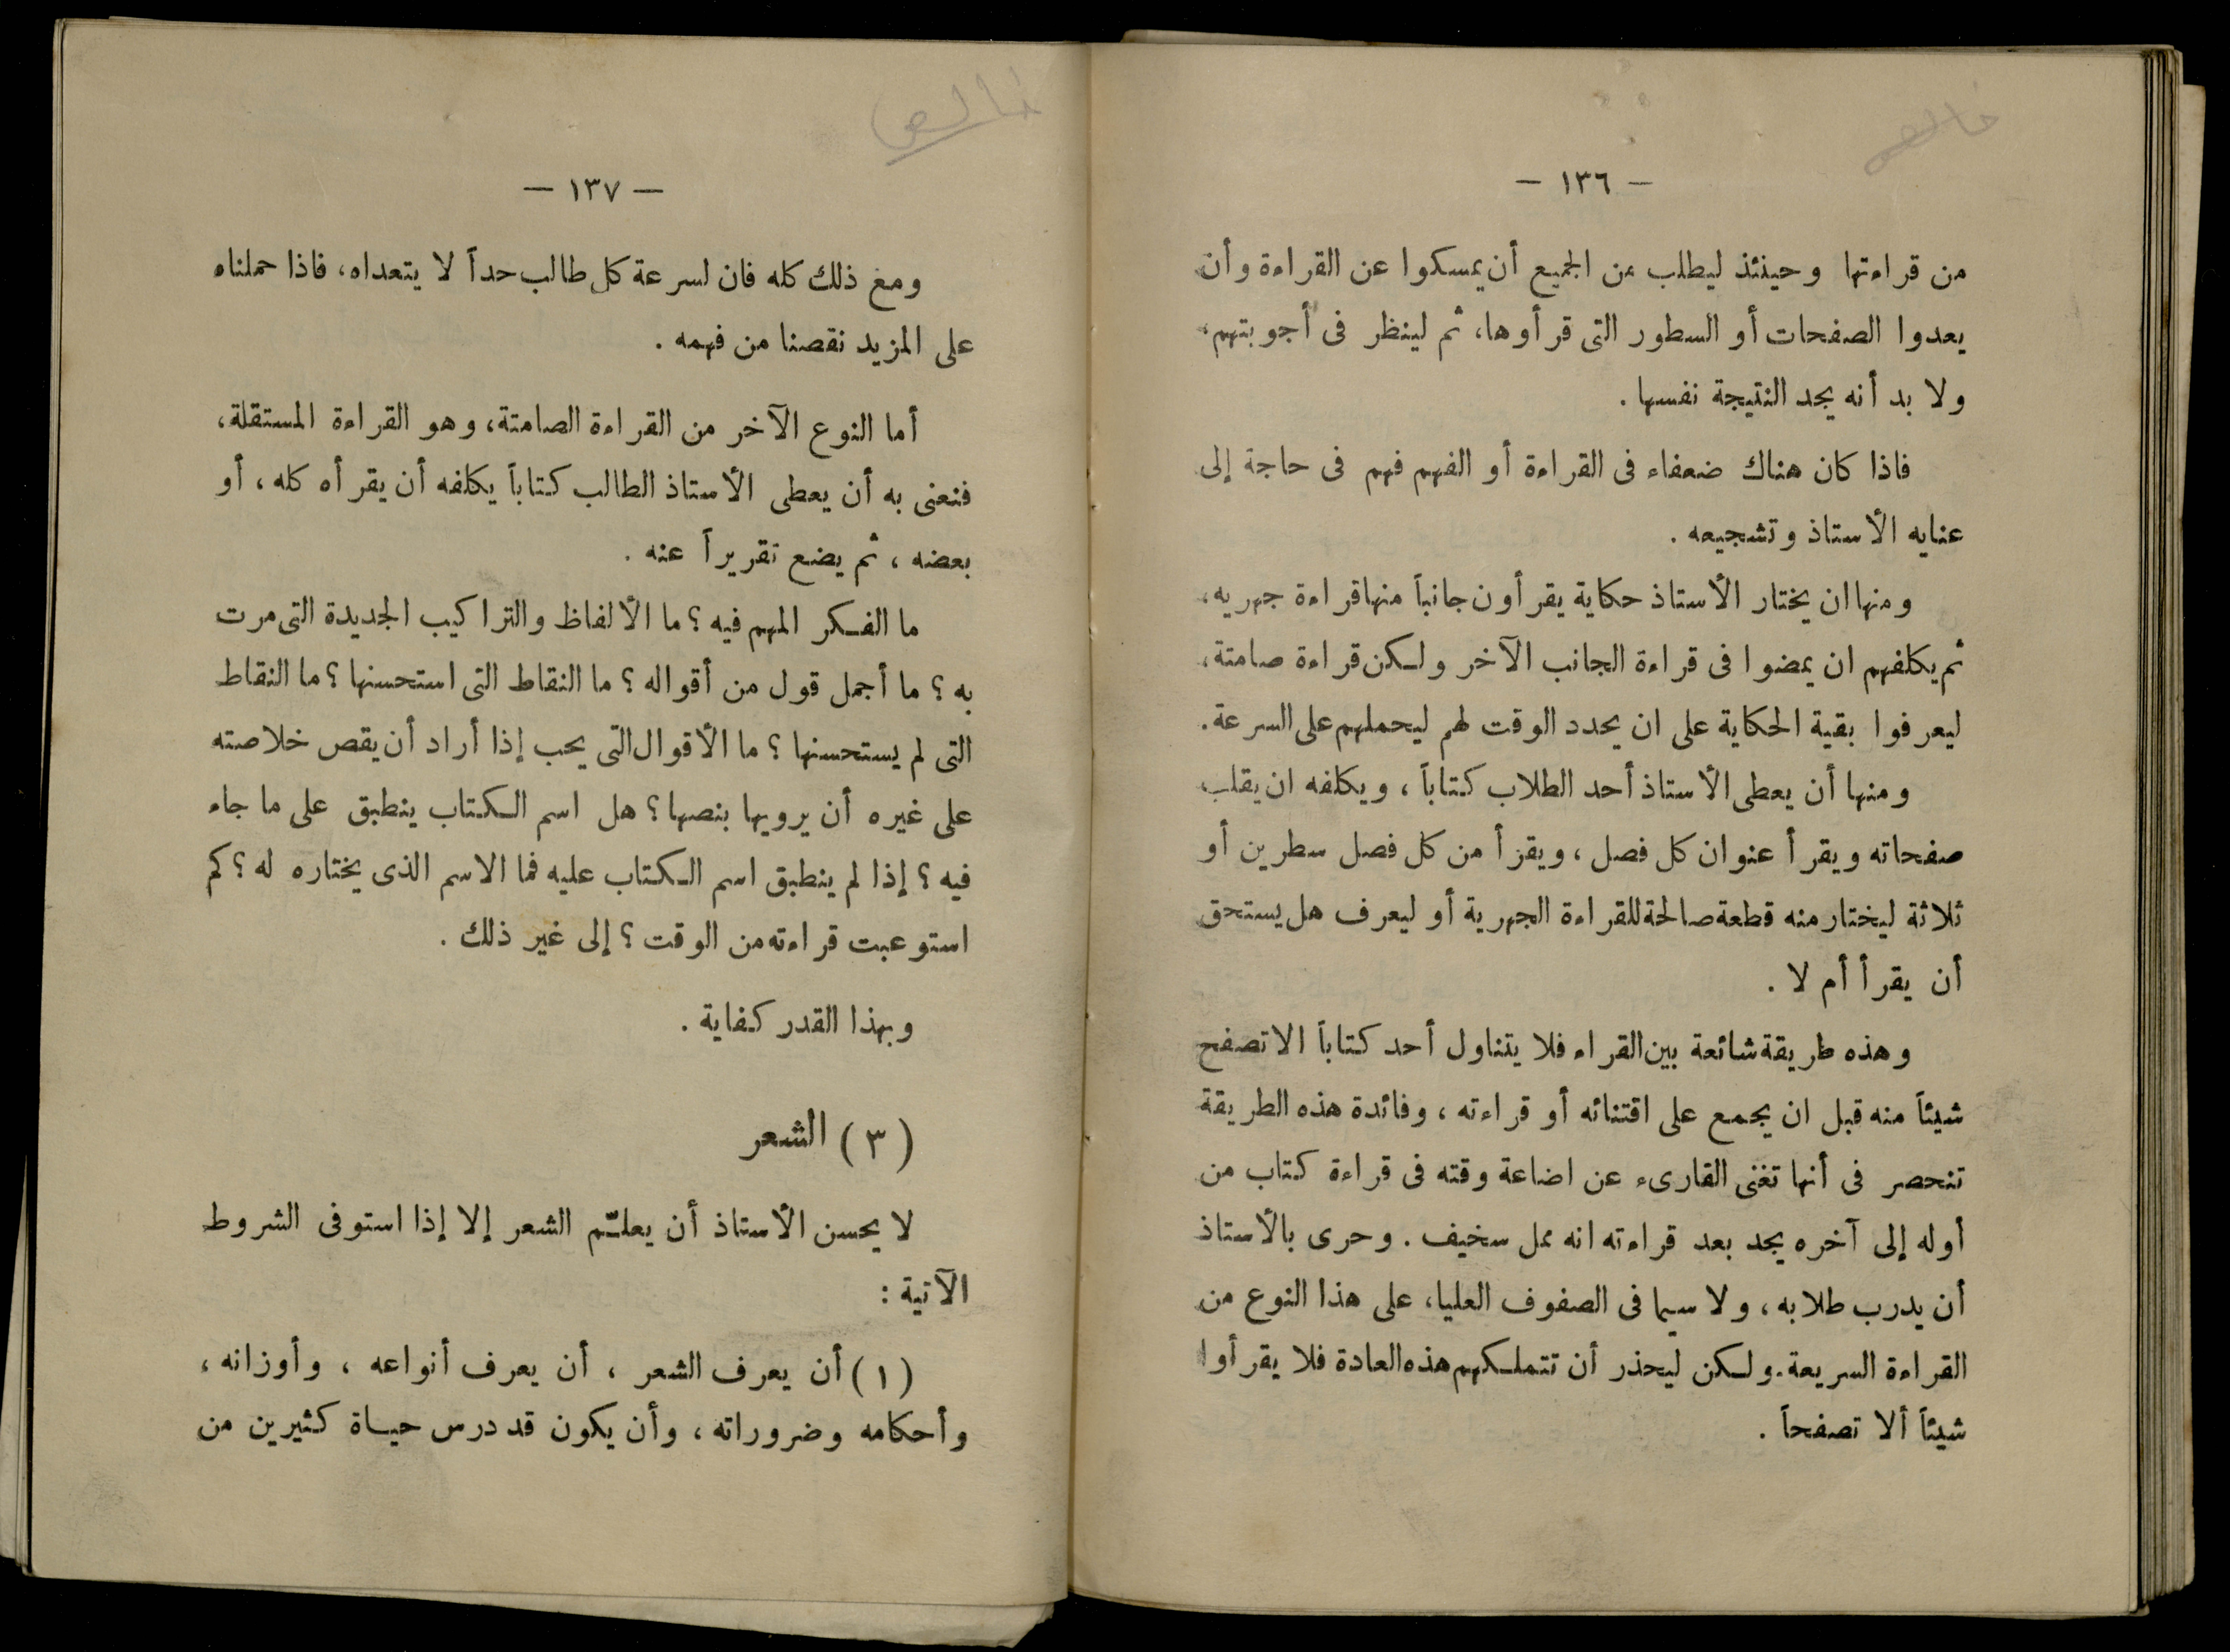 خالص
— ١٣٦ —
من قراءتها وحينئذ ليطلب من الجميع أن يمسكوا عن القراءة وأن
يعدوا الصفحات أو السطور التى قرأوها، ثم لينظر فى أجوبتهم،
ولا بد أنه يجد النتيجة نفسها .
فاذا كان هناك ضعفاء فى القراءة أو الفهم فهم فى حاجة إلى
عنايه الأستاذ وتشجيعه .
ومنها ان يختار الأستاذ حكاية يقرأون جانباً منها قراءة جهريه،
ثم يكلفهم ان يمضوا فى قراءة الجانب الآخر ولكن قراءة صامتة،
ليعرفوا بقية الحكاية على ان يحدد الوقت لهم ليحملهم على السرعة.
ومنها أن يعطى الأستاذ أحد الطلاب كتاباً ، ويكلفه ان يقلب
صفحاته ويقرأ عنوان كل فصل ، ويقرأ من كل فصل سطرين أو
ثلاثة ليختار منه قطعة صالحة للقراءة الجهرية أو ليعرف هل يستحق
أن يقرأ أم لا .
وهذه طريقة شائعة بين القراء فلا يتناول أحد كتاباً الا تصفح
شيئاً منه قبل ان يجمع على اقتنائه أو قراءته ، وفائدة هذه الطريقة
تنحصر فى أنها تغنى القارىء عن اضاعة وقته فى قراءة كتاب من
أوله إلى آخره يجد بعد قراءته انه ممل سخيف . وحرى بالأستاذ
أن يدرب طلابه ، ولا سيما فى الصفوف العليا، على هذا النوع من
القراءة السريعة. ولكن ليحذر أن تتملكهم هذه العادة فلا يقرأوا
شيئاً ألا تصفحاً .
خالص
— ١٣٧ —
ومع ذلك كله فان لسرعة كل طالب حداً لا يتعداه، فاذا حملناه
على المزيد نقصنا من فهمه .
أما النوع الآخر من القراءة الصامتة، وهو القراءة المستقلة،
فنعنى به أن يعطى الأستاذ الطالب كتاباً يكلفه أن يقرأه كله ، أو
بعضه ، ثم يضع تقريراً عنه .
ما الفكر المهم فيه ؟ ما الألفاظ والتراكيب الجديدة التى مرت
به ؟ ما أجمل قول من أقواله ؟ ما النقاط التى استحسنها ؟ ما النقاط
التى لم يستحسنها ؟ ما الأقوال التى يحب إذا أراد أن يقص خلاصته
على غيره أن يرويها بنصها ؟ هل اسم الكتاب ينطبق على ما جاء
فيه ؟ إذا لم ينطبق اسم الكتاب عليه فما الاسم الذى يختاره له ؟ كم
استوعبت قراءته من الوقت ؟ إلى غير ذلك .
وبهذا القدر كفاية .
( ٣ ) الشعر
لا يحسن الأستاذ أن يعلّم الشعر إلا إذا استوفى الشروط
الآتية :
( ١ ) أن يعرف الشعر ، أن يعرف أنواعه ، وأوزانه ،
وأحكامه وضروراته ، وأن يكون قد درس حياة كثيرين من